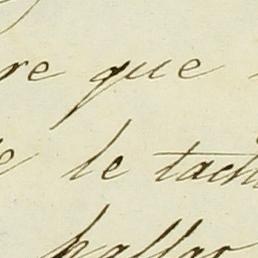 re que
e le tach
hallar